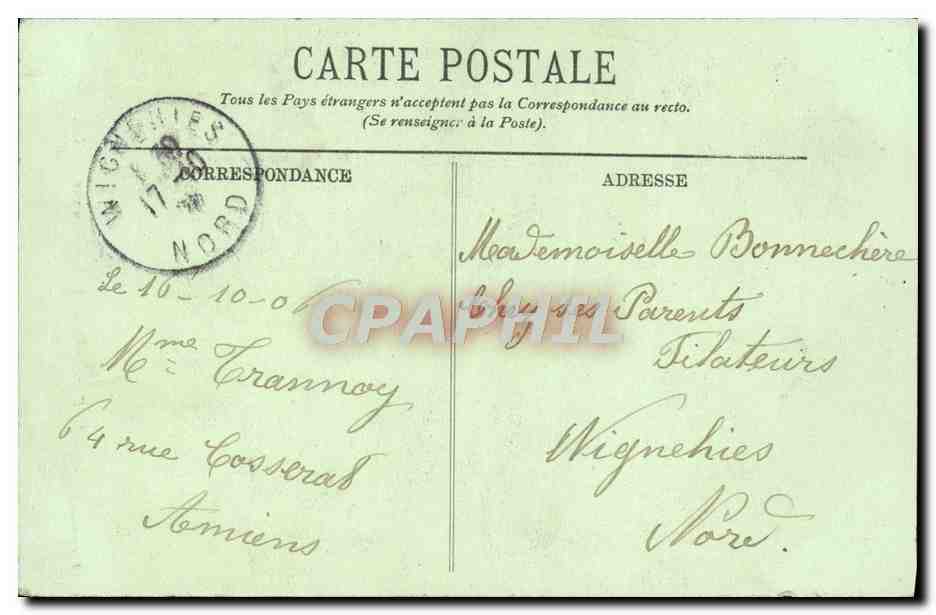 CARTE POSTALE
Tous les Pays étrangers n'acceptent pas la Correspondance au recto.
(Se renseigner à la Poste).
WIGNEHIES
17 10
NORD
CORRESPONDANCE
Le 16-10-06
Mme Trannoy
64 rue Cosserat
Amiens
ADRESSE
Mademoiselle Bonnechère
Chez ses Parents
Filateurs
Wignehies
Nord.
CPAPHIL